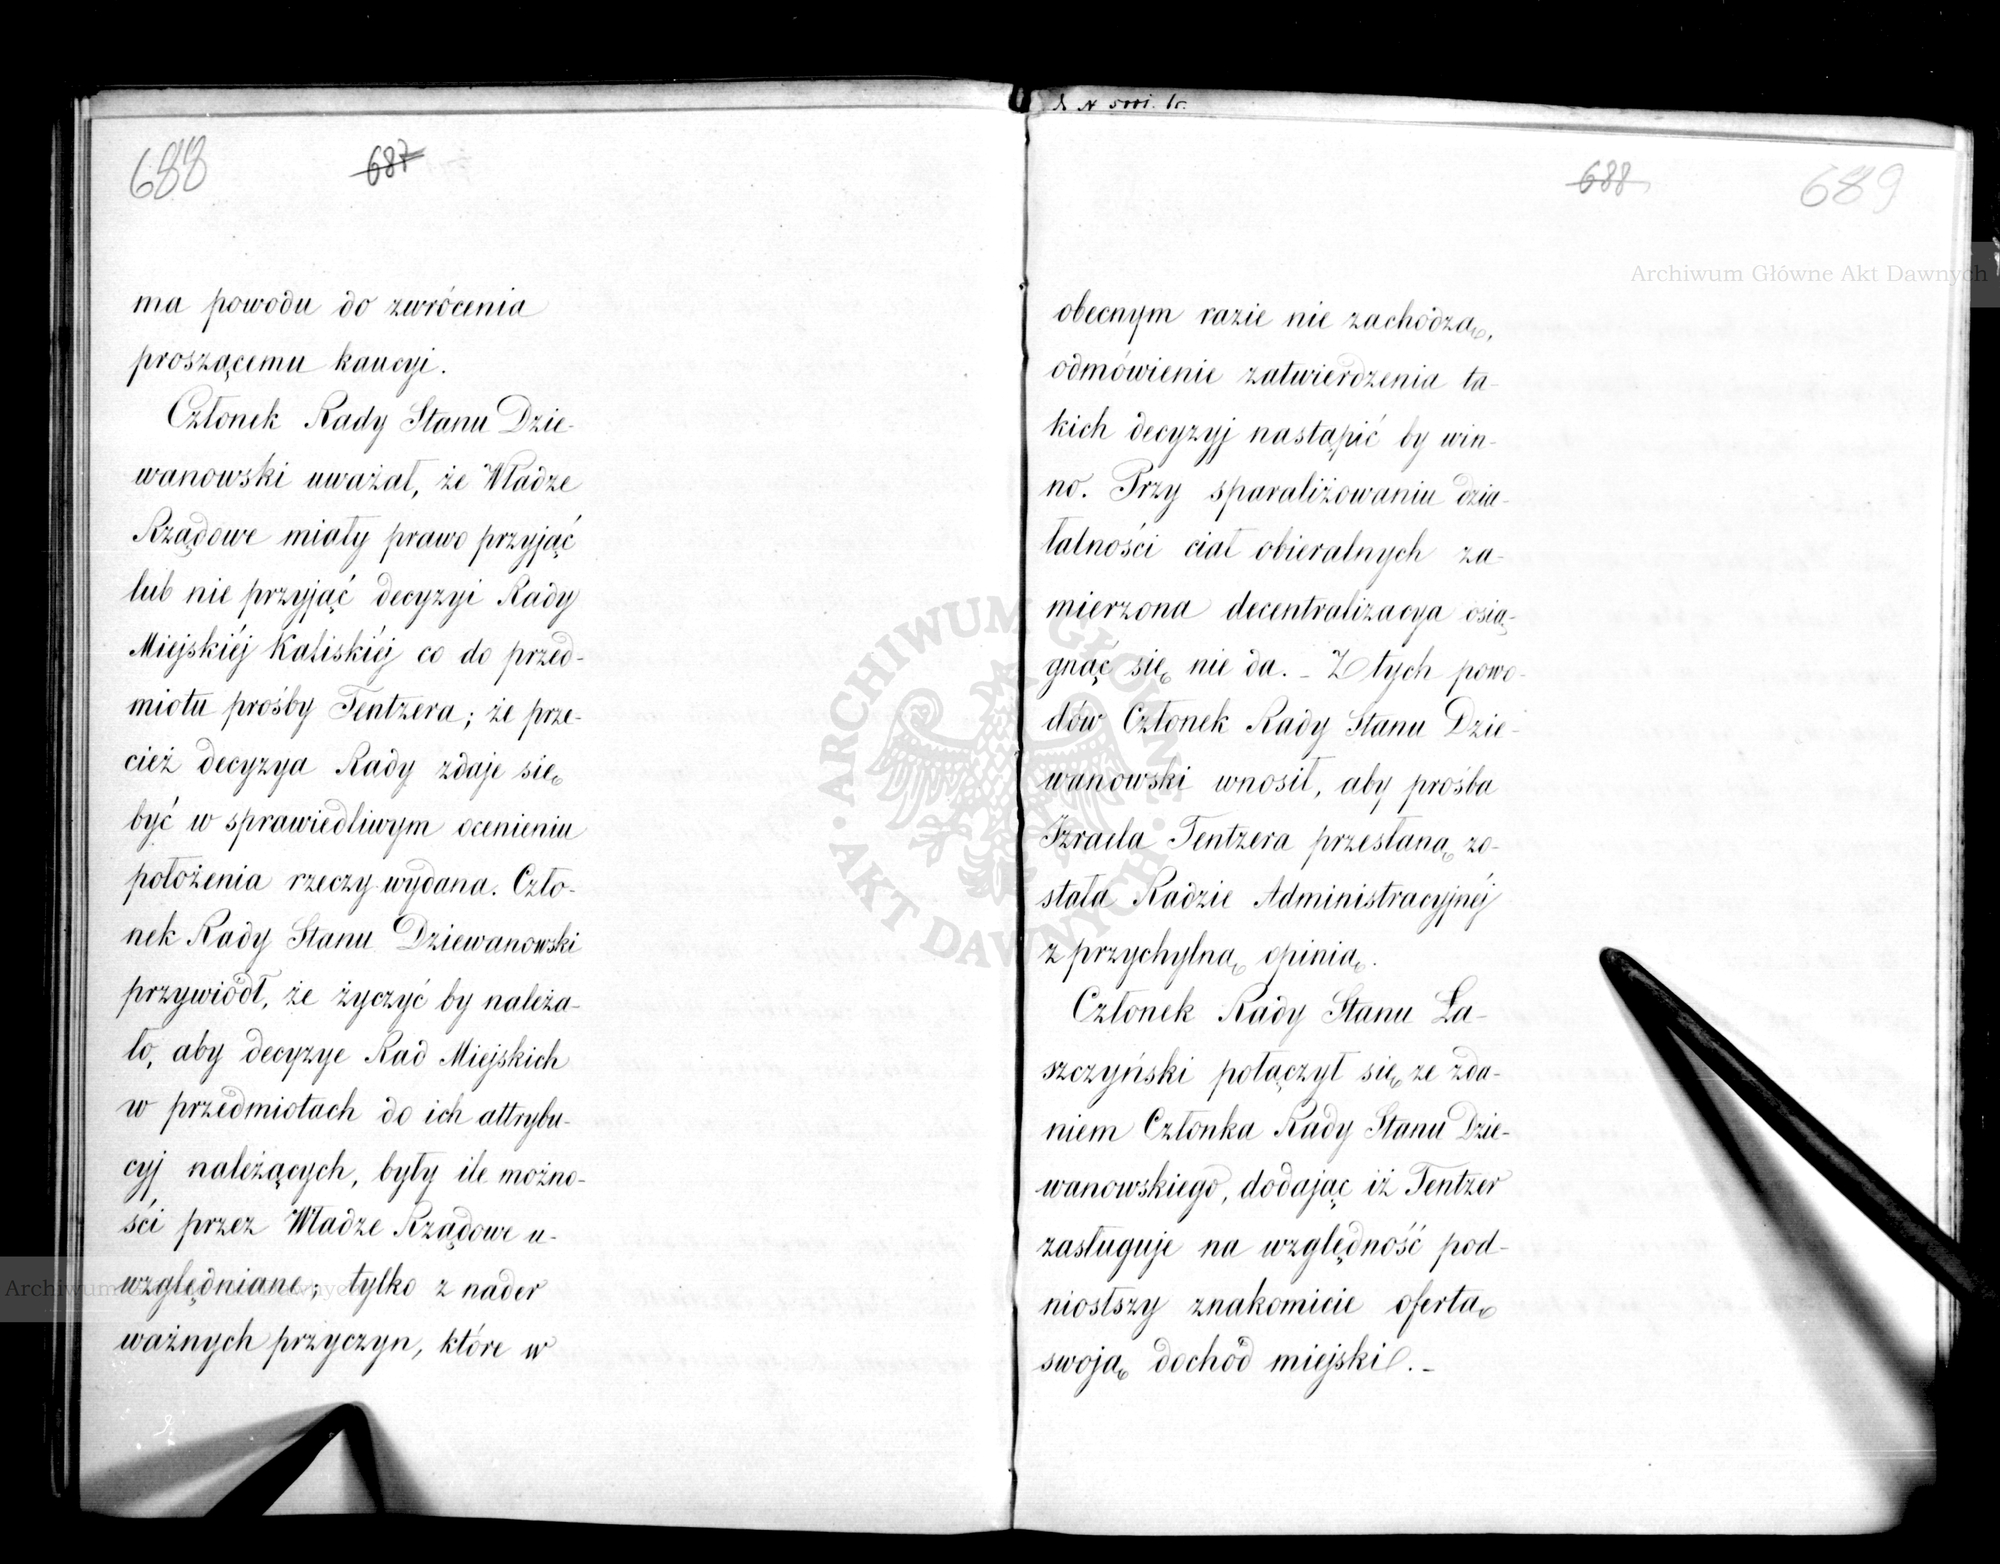 688 687
ma powodu do zwrócenia
proszącemu kaucyi.
Członek Rady Stanu Dzie-
wanowski uważał, że Władze
Rządowe miały prawo przyjąć
lub nie przyjąć decyzyi Rady
Miejskiéj Kaliskiéj co do przed-
miotu prośby Tentzera; że prze-
cież decyzya Rady zdaje się
być w sprawiedliwym ocenieniu
położenia rzeczy wydana. Czło-
nek Rady Stanu Dziewanowski
przywiódł, że życzyć by należa-
ło, aby decyzye Rad Miejskich
w przedmiotach do ich attrybu-
cyj należących, były ile możno-
ści przez Władze Rządowe u-
względniane; tylko z nader
ważnych przyczyn, które w
688 689
obecnym razie nie zachodzą,
odmówienie zatwierdzenia ta-
kich decyzyj nastąpić by win-
no. Przy sparaliżowaniu dzia-
łalności ciał obieralnych za-
mierzona decentralizacya osią-
gnąć się nie da. - Z tych powo-
dów Członek Rady Stanu Dzie-
wanowski wnosił, aby prośba
Izraela Tentzera przesłaną zo-
stała Radzie Administracyjnéj
z przychylną opinią.
Członek Rady Stanu Ła-
szczyński połączył się ze zda-
niem Członka Rady Stanu Dzie-
wanowskiego, dodając iż Tentzer
zasługuje na względność pod-
niosłszy znakomicie ofertą
swoją dochód miejski. -
Archiwum Główne Akt Dawnych
ARCHIWUM GŁÓWNE · AKT DAWNYCH ·